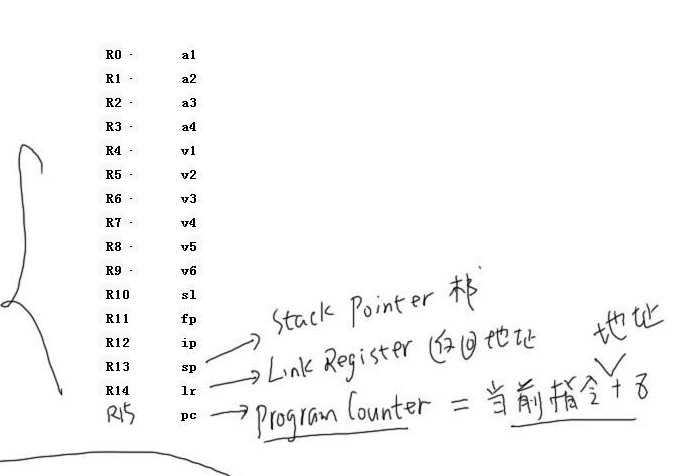 R0 - a1
R1 - a2
R2 - a3
R3 - a4
R4 - v1
R5 - v2
R6 - v3
R7 - v4
R8 - v5
R9 - v6
R10 sl
R11 fp
R12 ip
R13 sp Stack Pointer 栈
R14 lr Link Register 返回地址
地址
R15 pc Program Counter = 当前指令 + 8